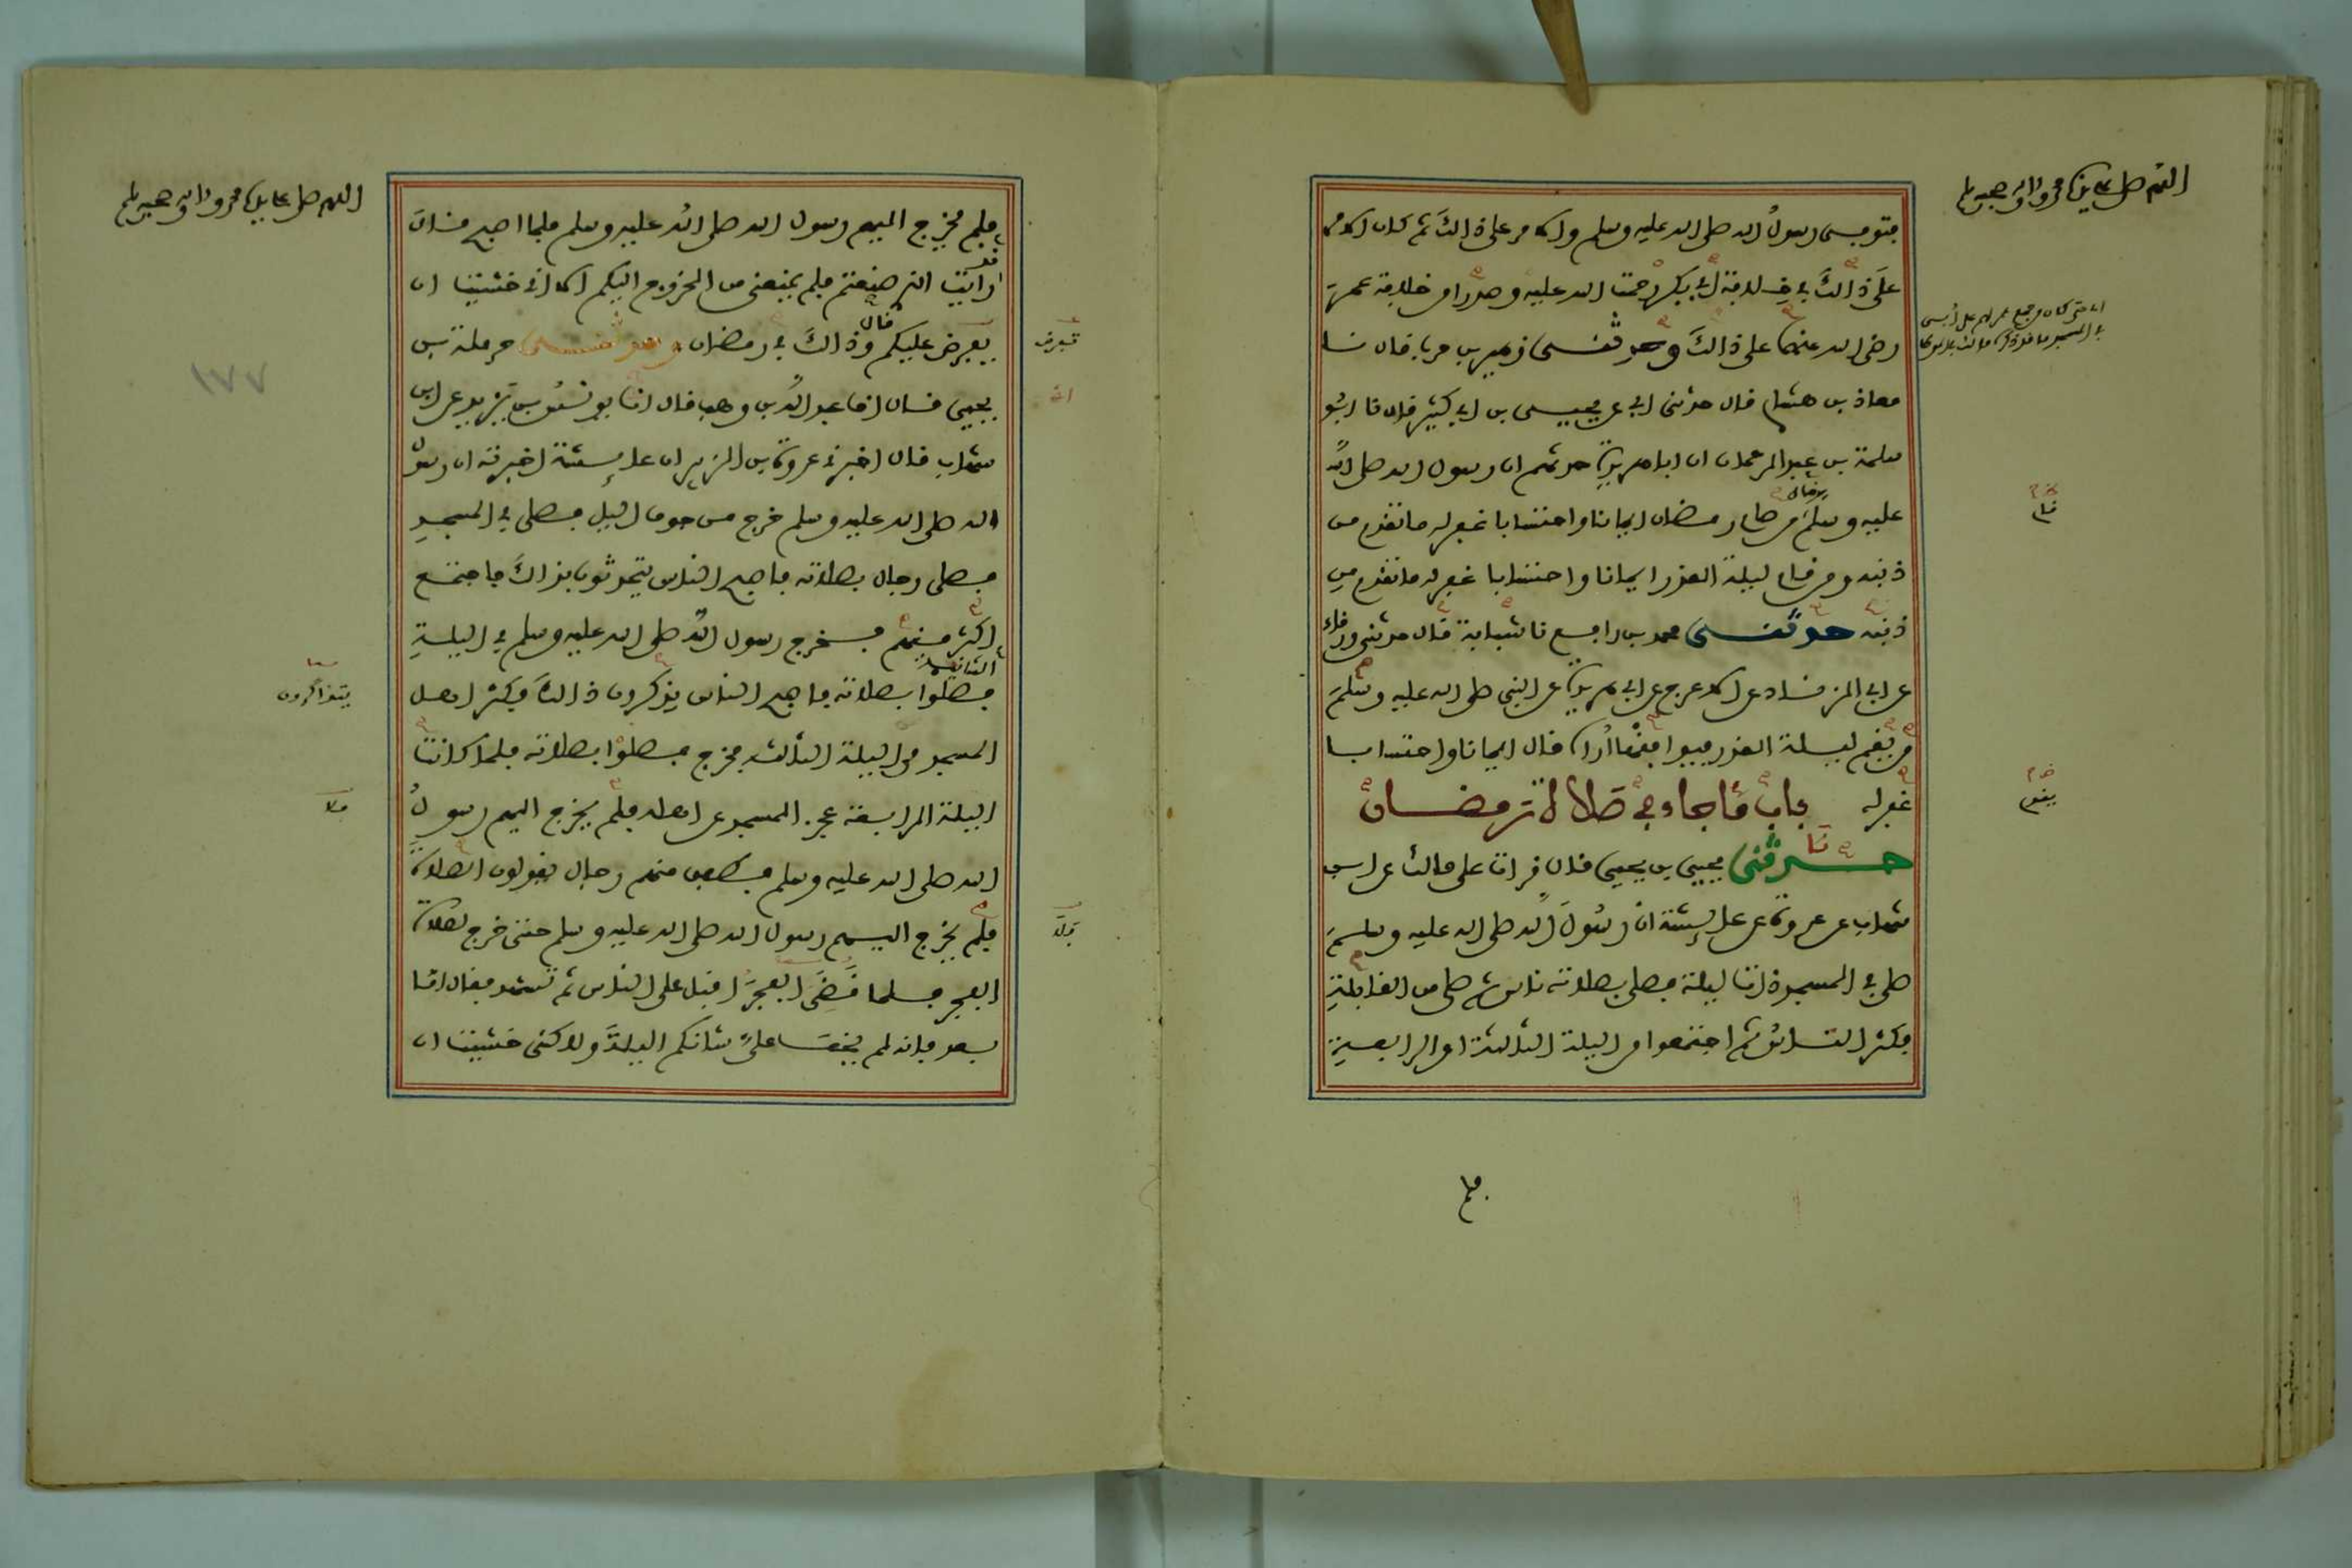 اللهم صل على سيدنا محمد وءاله وصحبه وسلم
فتوفى رسول الله صلى الله عليه وسلم والامر على ذالك ثم كان الامر
على ذالك في خلافة أبي بكر رحمت الله عليه وصدرا من خلافة عمر
رضى الله عنهما على ذالك وحدثنى زهير بن حرب قال نا
معاذ بن هشام قال حدثنى ابي عن يحيى بن ابي كثير قال نا ابو
سلمة بن عبد الرحمان ان ابا هريرة حدثهم ان رسول الله صلى الله
عليه وسلم قال من صام رمضان ايمانا واحتسابا غفر له ما تقدم من
ذنبه ومن قام ليلة القدر ايمانا واحتسابا غفر له ما تقدم من
ذنبه حدثنى محمد بن رافع نا شبابة قال حدثنى ورقاء
عن ابي الزناد عن الاعرج عن ابي هريرة عن النبى صلى الله عليه وسلم
من يقم ليلة القدر فيوافقها أراه قال ايمانا واحتسابا
غفر له باب ما جاء في صلاة رمضان
حدثنى يحيى بن يحيى قال قرات على مالك عن ابن
شهاب عن عروة عن عائشة ان رسول الله صلى الله عليه وسلم
صلى في المسجد ذات ليلة فصلى بصلاته ناس ثم صلى من القابلة
فكثر الناس ثم اجتمعوا من الليلة الثالثة او الرابعة
قام
يقوم
فلم
اللهم صل على سيدنا محمد وءاله وصحبه وسلم
١٧٧
فلم يخرج اليهم رسول الله صلى الله عليه وسلم فلما اصبح قال
قد رايت الذي صنعتم فلم يمنعنى من الخروج اليكم الا انى خشيت ان
يفرض عليكم قال وذالك في رمضان وحدثنى حرملة بن
يحيى قال انا عبد الله بن وهب قال انا يونس بن يزيد عن ابن
شهاب قال اخبرنى عروة بن الزبير ان عائشة اخبرته ان رسول
الله صلى الله عليه وسلم خرج من جوف الليل فصلى في المسجد
فصلى رجال بصلاته فاصبح الناس يتحدثون بذالك فاجتمع
اكثر منهم فخرج رسول الله صلى الله عليه وسلم في الليلة
الثانية فصلوا بصلاته فاصبح الناس يذكرون ذالك فكثر اهل
المسجد من الليلة الثالثة فخرج فصلوا بصلاته فلما كانت
الليلة الرابعة عجز المسجد عن اهله فلم يخرج اليهم رسول
الله صلى الله عليه وسلم فطفق منهم رجال يقولون الصلاة
فلم يخرج اليهم رسول الله صلى الله عليه وسلم حتى خرج لصلاة
الفجر فلما قضى الفجر اقبل على الناس ثم تشهد فقال اما
بعد فانه لم يخف على شانكم الليلة ولاكنى خشيت ان
تفرض
يتذاكرون